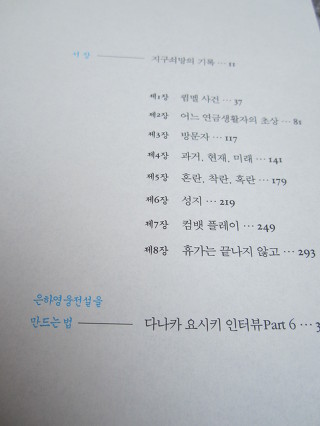 서장 지구쇠망의 기록 … 11
제1장 륌벨 사건 … 37
제2장 어느 연금생활자의 초상 … 81
제3장 방문자 … 117
제4장 과거, 현재, 미래 … 141
제5장 혼란, 착란, 혹란 … 179
제6장 성지 … 219
제7장 컴뱃 플레이 … 249
제8장 휴가는 끝나지 않고 … 293
은하영웅전설을
만드는 법 다나카 요시키 인터뷰 Part 6 … 3